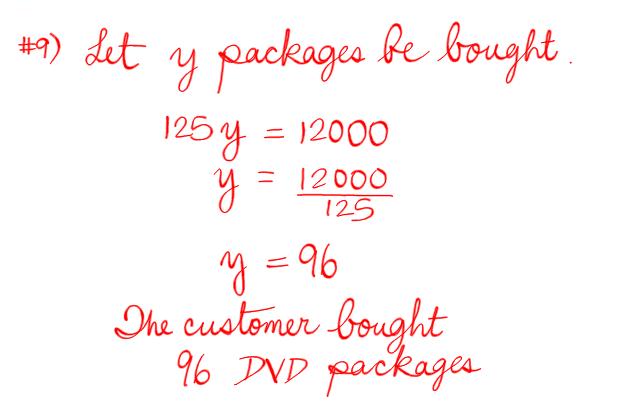 #9) Let y packages be bought.
125y = 12000
y = 12000/125
y = 96
The customer bought
96 DVD packages